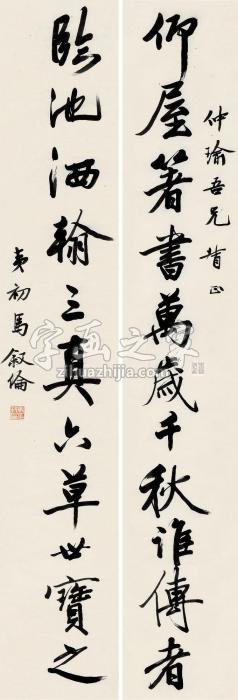 仲瑜吾兄詧正
仰屋著書萬歲千秋誰傳者
臨池洒翰三真六草世寶之
夷初馬叙倫
字画之家
zihuazhijia.com